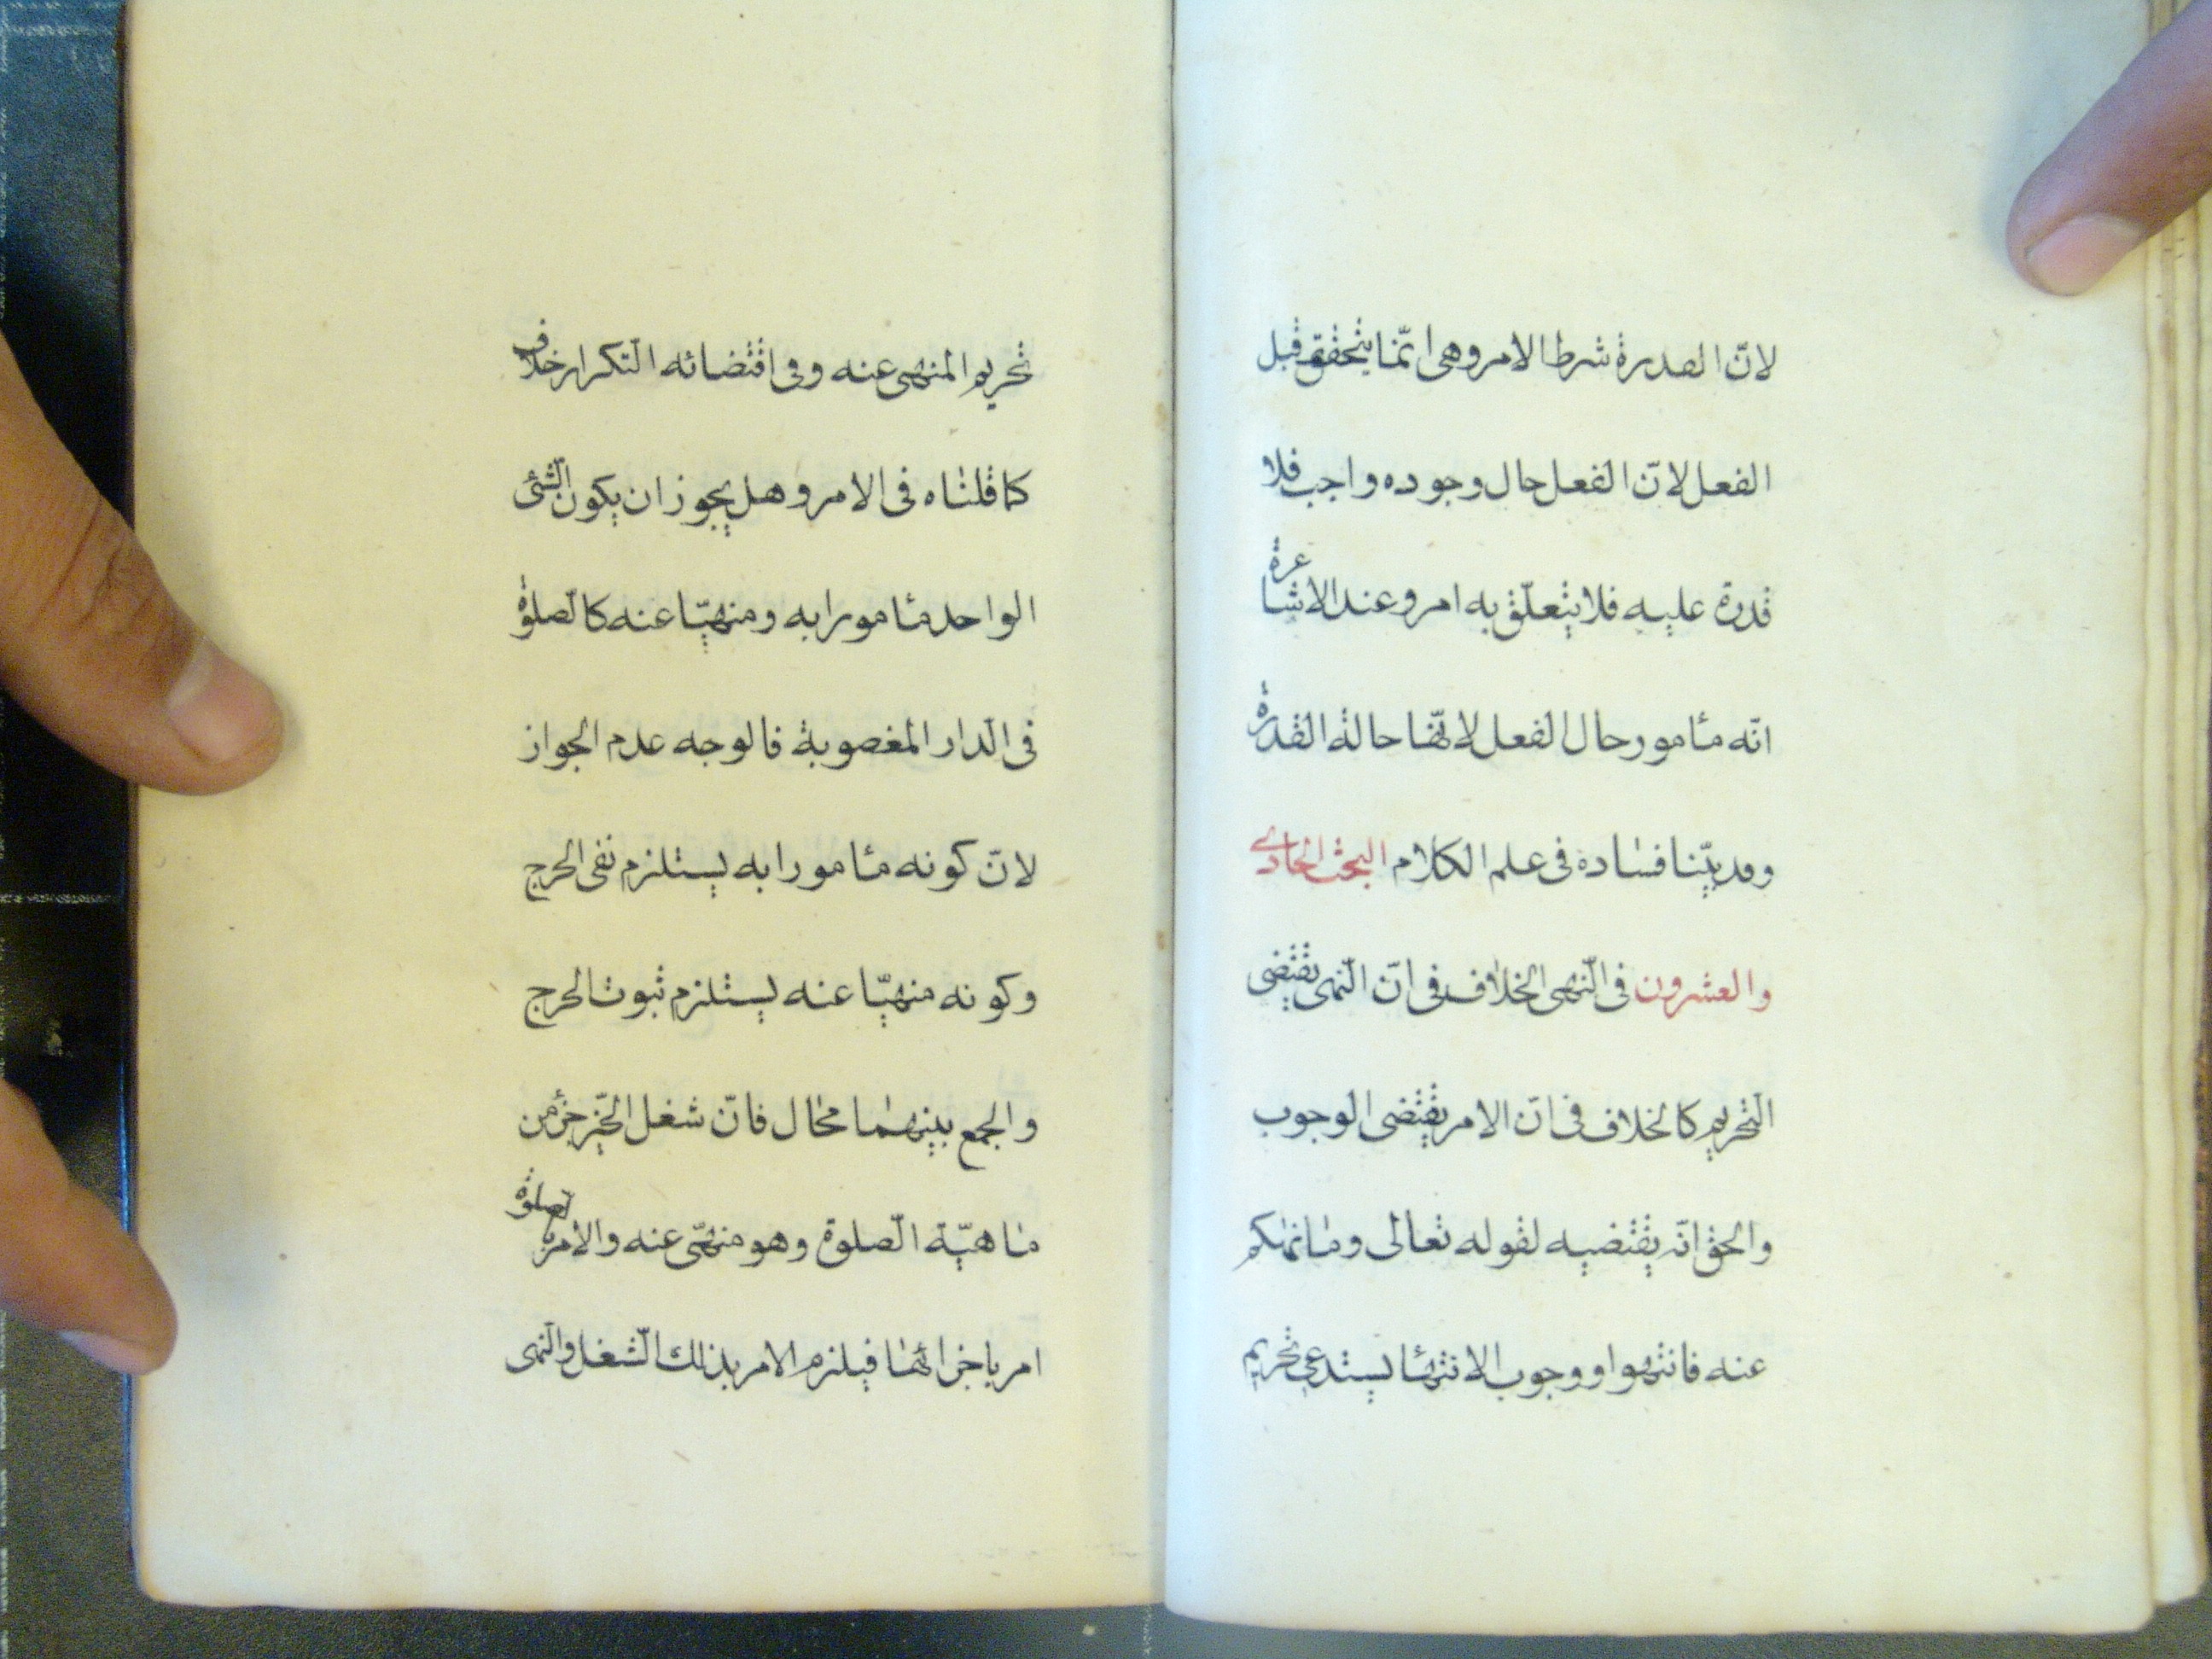 لانّ القدرة شرط الامر وهى انّما يتحقق قبل
الفعل لانّ الفعل حال وجوده واجب فلا
قدرة عليه فلا يتعلّق به امر وعند الاشاعرة
انّه مأمور حال الفعل لانّها حالة القدرة
وقد بيّنا فساده فى علم الكلام البحث الحادى
والعشرون فى النّهى الخلاف فى انّ النّهى يقتضى
التحريم كالخلاف فى انّ الامر يقتضى الوجوب
والحق انّه يقتضيه لقوله تعالى وما نهٰىكم
عنه فانتهوا ووجوب الانتهاء يستدعى تحريم
تحريم المنهى عنه وفى اقتضائه التّكرار خلاف
كما قلناه فى الامر وهل يجوز ان يكون الشّئ
الواحد مأمورا به ومنهيّا عنه كالصّلوة
فى الدّار المغصوبة فالوجه عدم الجواز
لانّ كونه مأمورا به يستلزم نفى الحرج
وكونه منهيّا عنه يستلزم ثبوت الحرج
والجمع بينهما محال فانّ شغل الحيّز جزء من
ماهيّة الصّلوة وهو منهىّ عنه والامر بالصلوة
امر باجزائها فيلزم الامر بذلك الشّغل والنّهى